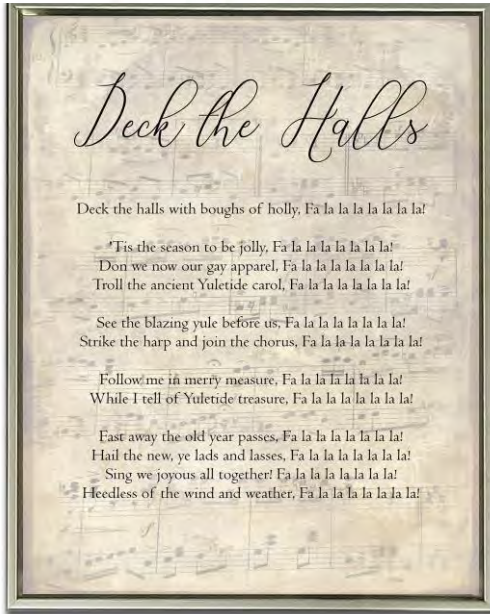 Deck the Halls
Deck the halls with boughs of holly, Fa la la la la la la la!
'Tis the season to be jolly, Fa la la la la la la la!
Don we now our gay apparel, Fa la la la la la la la!
Troll the ancient Yuletide carol, Fa la la la la la la la!
See the blazing yule before us, Fa la la la la la la la!
Strike the harp and join the chorus, Fa la la la la la la la!
Follow me in merry measure, Fa la la la la la la la!
While I tell of Yuletide treasure, Fa la la la la la la la!
Fast away the old year passes, Fa la la la la la la la!
Hail the new, ye lads and lasses, Fa la la la la la la la!
Sing we joyous all together! Fa la la la la la la la!
Heedless of the wind and weather, Fa la la la la la la la!